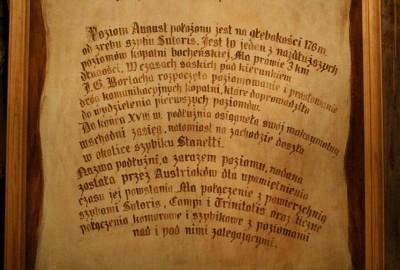 Poziom August położony jest na głębokości 176 m.
od zrębu szybu Sutoris. Jest to jeden z najdłuższych
poziomów kopalni bocheńskiej. Ma prawie 3 km
długości. W czasach saskich pod kierunkiem
J.G. Borlacha rozpoczęto poziomowanie i prostowanie
dróg komunikacyjnych kopalni, które doprowadziło
do wydzielenia pierwszych poziomów.
Do końca XVIII w. podłużnia osiągnęła swój maksymalny
wschodni zasięg, natomiast na zachodzie doszła
w okolice szybiku Stanetti.
Nazwa podłużni, a zarazem poziomu, nadana
została przez Austriaków dla upamiętnienia
czasu jej powstania. Ma połączenie z powierzchnią
szybami Sutoris, Campi i Trinitatis oraz liczne
połączenia komorowe i szybikowe z poziomami
nad i pod nimi zalegającymi.